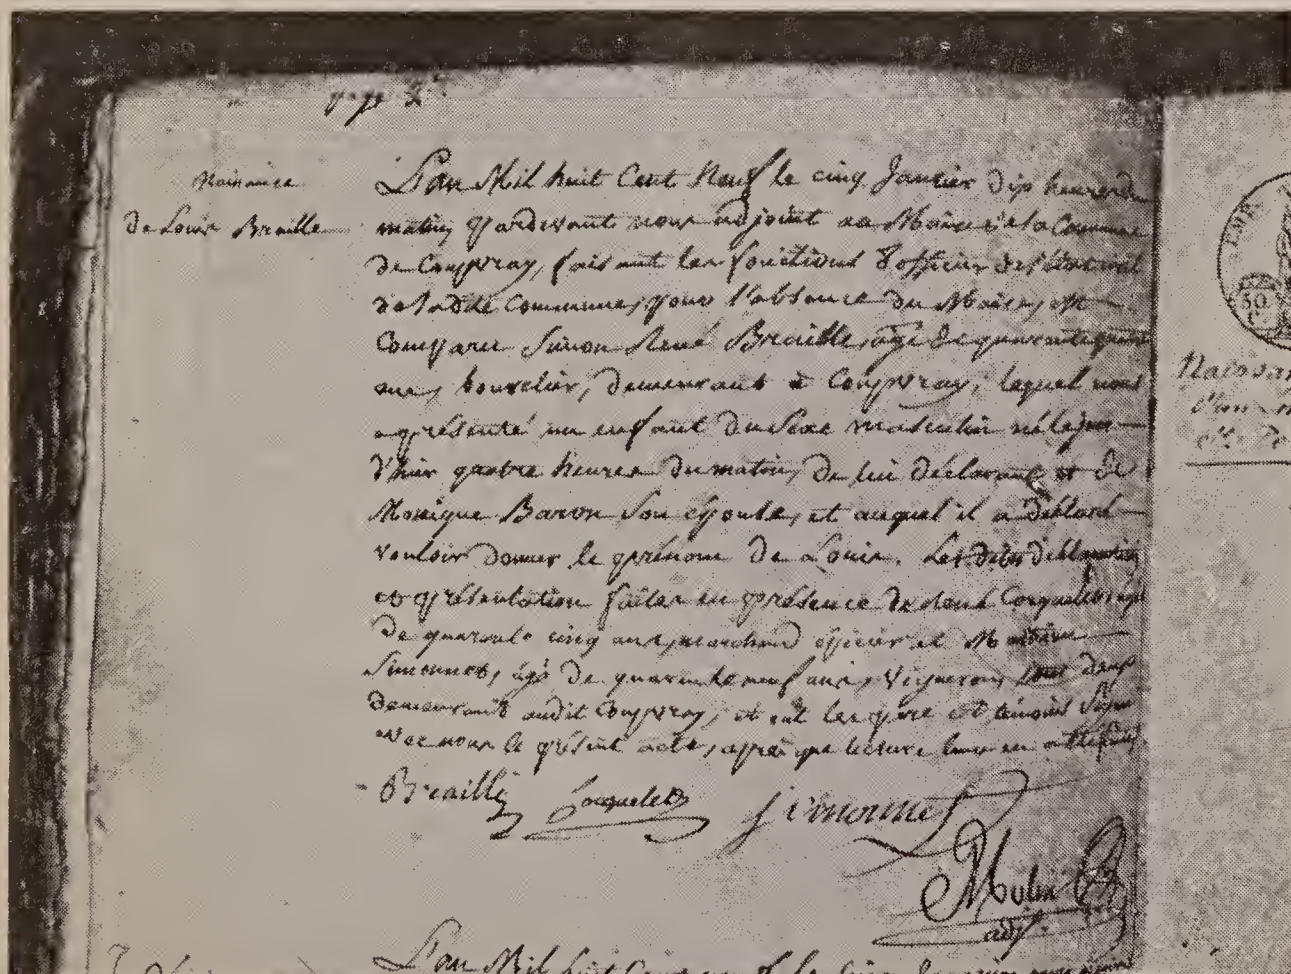 page 2
Naissance
de Louis Braille
L'an Mil huit Cent Neuf le cinq Janvier dix heures du
matin pardevant nous adjoint au Maire de la Commune
de Coupvray, faisant les fonctions d'officier de l'état civil
de ladite Commune, pour l'absence du Maire, est
Comparu Simon René Braille, agé de quarante quatre
ans, bourelier, demeurant à Coupvray, lequel nous
a présenté un enfant du Sexe masculin né le jour
d'hier quatre heures du matin, de lui déclarant et de
Monique Baron son épouse, et auquel il a déclaré
vouloir donner le prénom de Louis. Les dites déclaration
et présentation faites en présence de
de quarante cinq ans, marchand épicier et
Simonnet, âgé de quarante neuf ans, vigneron, tous deux
demeurants audit Coupvray, et ont les père et témoins signé
avec nous le présent acte, après que lecture leur en a été
Braille Coquelet Simonnet
Molin
adj.
L'an Mil huit Cent neuf le cinq Janvier
50
c.
Naissan
l'an m